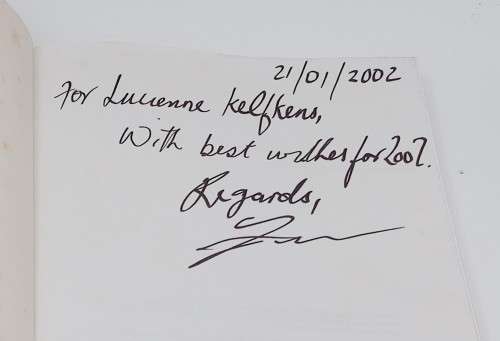 21/01/2002
For Lucienne Kelfkens,
With best wishes for 2002.
Regards,